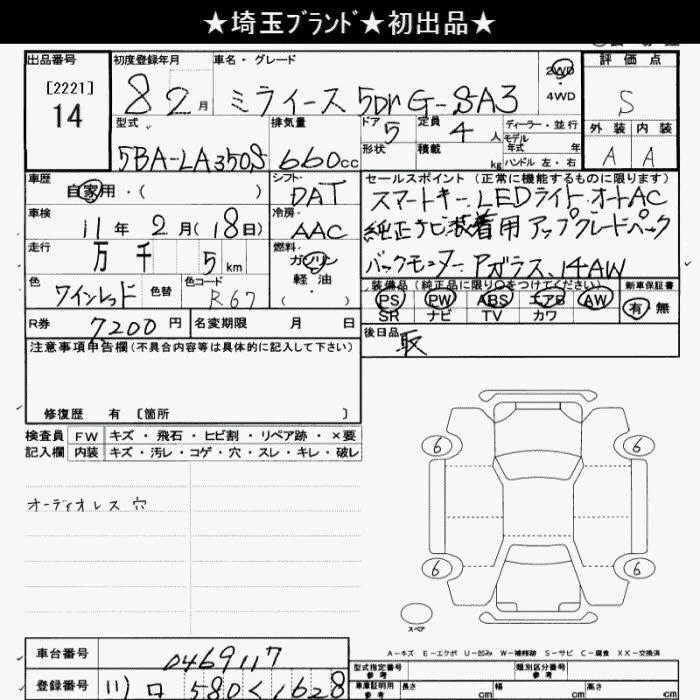 ★埼玉ﾌﾞﾗﾝﾄﾞ★初出品★
出品番号 初度登録年月 車名・グレード 2WD 評価点
[2221] 14 8 2月 ミライース 5Dr G-SA3 4WD S
型式 排気量 ドア 5 定員 4人 ディーラー・並行 外装 内装
モデル年式 年
5BA-LA350S 660cc 形状 積載 kg ハンドル 左・右 A A
車歴 シフト セールスポイント (正常に機能するものに限ります)
自家用・( ) DAT スマートキー LEDライト オートAC
車検 11年 2月(18日) 冷房 AAC 純正ナビ装着用アップグレードパック
走行 万 千 5km 燃料 ガソリン 軽油 バックモニター Aガラス、14AW
色 ワインレッド 色替 色コード R67 装備品(純正品に限り○をつけてください) 新車保証書
PS PW ABS エアB AW 有 無
SR ナビ TV カワ
R券 7200円 名変期限 月 日 後日品 取
注意事項申告欄(不具合内容等は具体的に記入して下さい)
修復歴 有 〔箇所 〕
検査員 FW キズ・飛石・ヒビ割・リペア跡・×要
記入欄 内装 キズ・汚レ・コゲ・穴・スレ・キレ・破レ
オーディオレス 穴
6 6
6 6
スペア
A-キズ E-エクボ U-凹み W-補修跡 S-サビ C-腐食 XX-交換済
車台番号 0469117 型式指定番号 参考 類別区分番号 参考
登録番号 580 く 1628 車庫証明用 参考 長さ cm 幅 cm 高さ cm